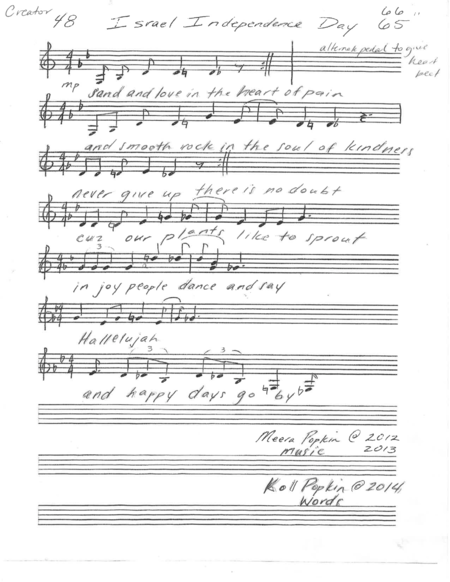 Creator
48 Israel Independence Day 65
66
alternate pedal to give
heart
beat
mp
sand and love in the heart of pain
and smooth rock in the soul of kindness
never give up there is no doubt
cuz our plants like to sprout
3
in joy people dance and say
Hallelujah
3 3
and happy days go by
Meera Popkin @ 2012
music 2013
Koll Popkin @ 2014
Words